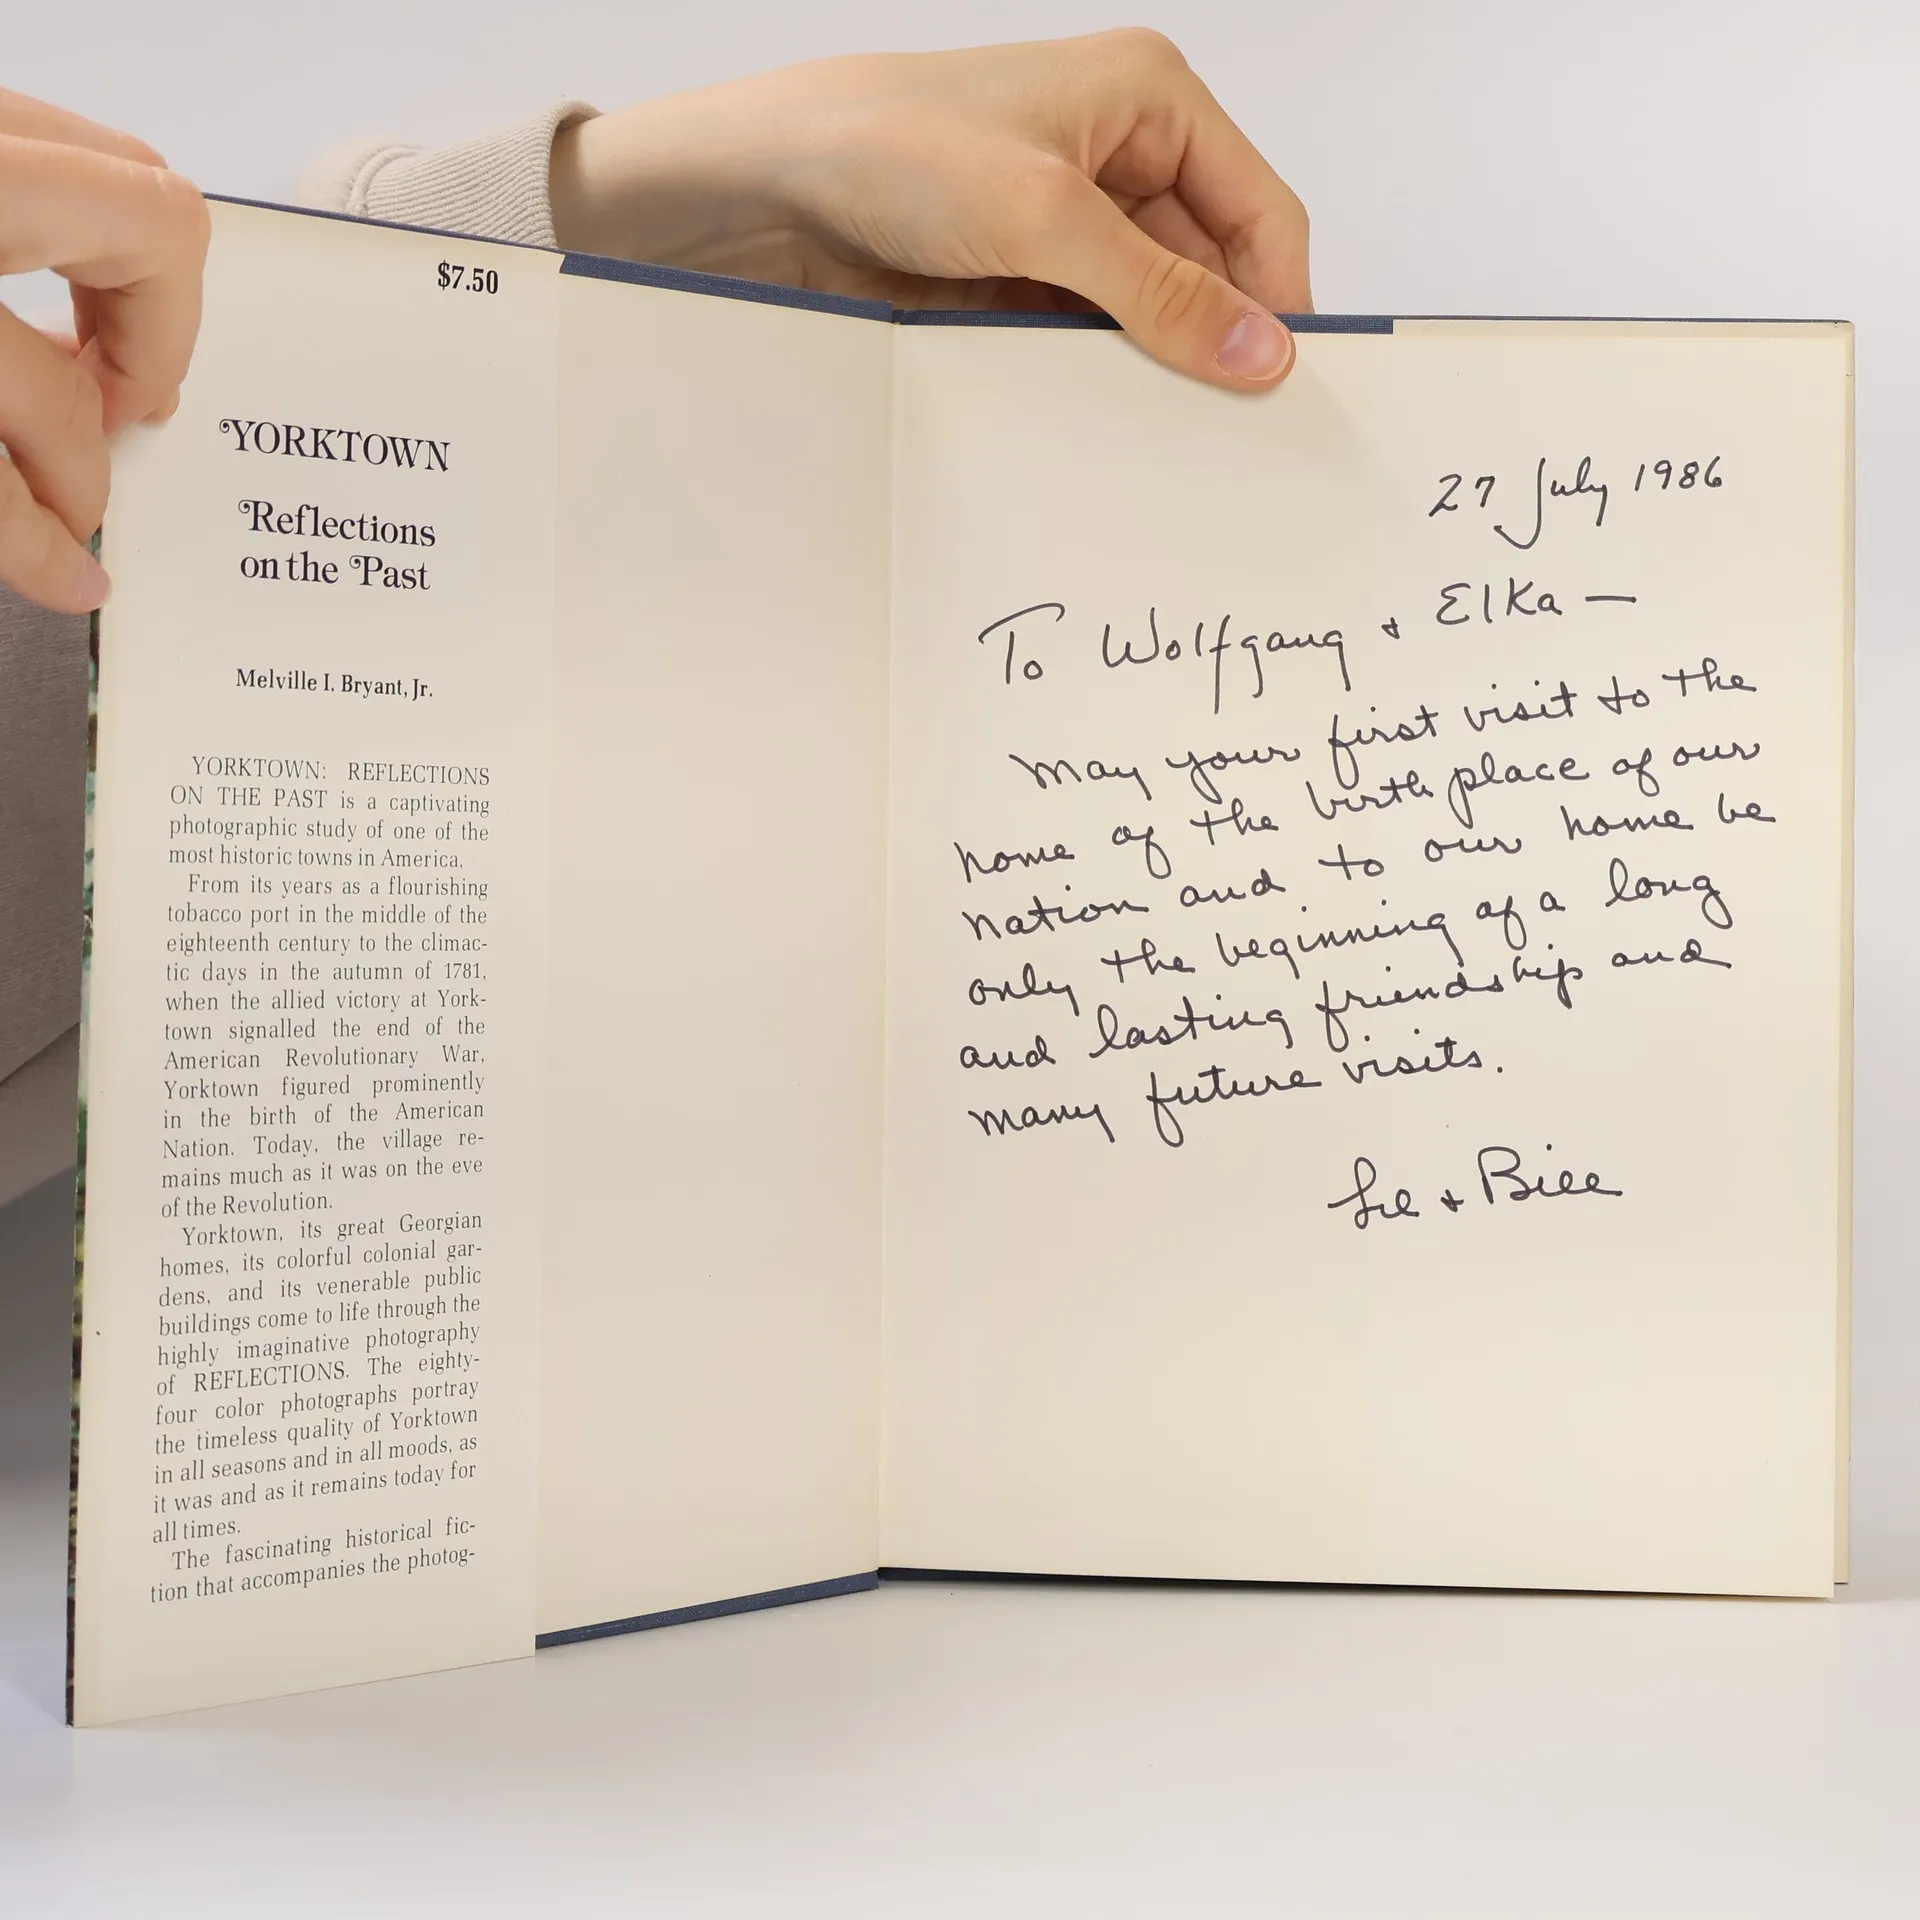 $7.50
YORKTOWN
Reflections
on the Past
Melville I. Bryant, Jr.
YORKTOWN: REFLECTIONS
ON THE PAST is a captivating
photographic study of one of the
most historic towns in America.
From its years as a flourishing
tobacco port in the middle of the
eighteenth century to the climac-
tic days in the autumn of 1781,
when the allied victory at York-
town signalled the end of the
American Revolutionary War,
Yorktown figured prominently
in the birth of the American
Nation. Today, the village re-
mains much as it was on the eve
of the Revolution.
Yorktown, its great Georgian
homes, its colorful colonial gar-
dens, and its venerable public
buildings come to life through the
highly imaginative photography
of REFLECTIONS. The eighty-
four color photographs portray
the timeless quality of Yorktown
in all seasons and in all moods, as
it was and as it remains today for
all times.
The fascinating historical fic-
tion that accompanies the photog-
27 July 1986
To Wolfgang & Elka —
May your first visit to the
home of the birth place of our
nation and to our home be
only the beginning of a long
and lasting friendship and
many future visits.
& Bill